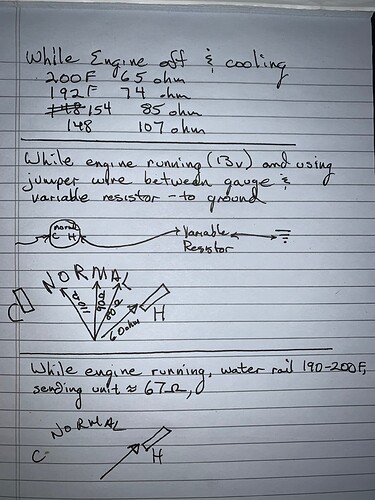 While Engine off & cooling
200F 65 ohm
192F 74 ohm
154 85 ohm
148 107 ohm
While engine running (13v) and using
jumper wire between gauge &
variable resistor - to ground
normal
C H
Variable
Resistor
NORMAL
110Ω 90Ω 80Ω
60ohm
C H
While engine running, water rail 190-200F,
sending unit ≈ 67Ω,
NORMAL
C H